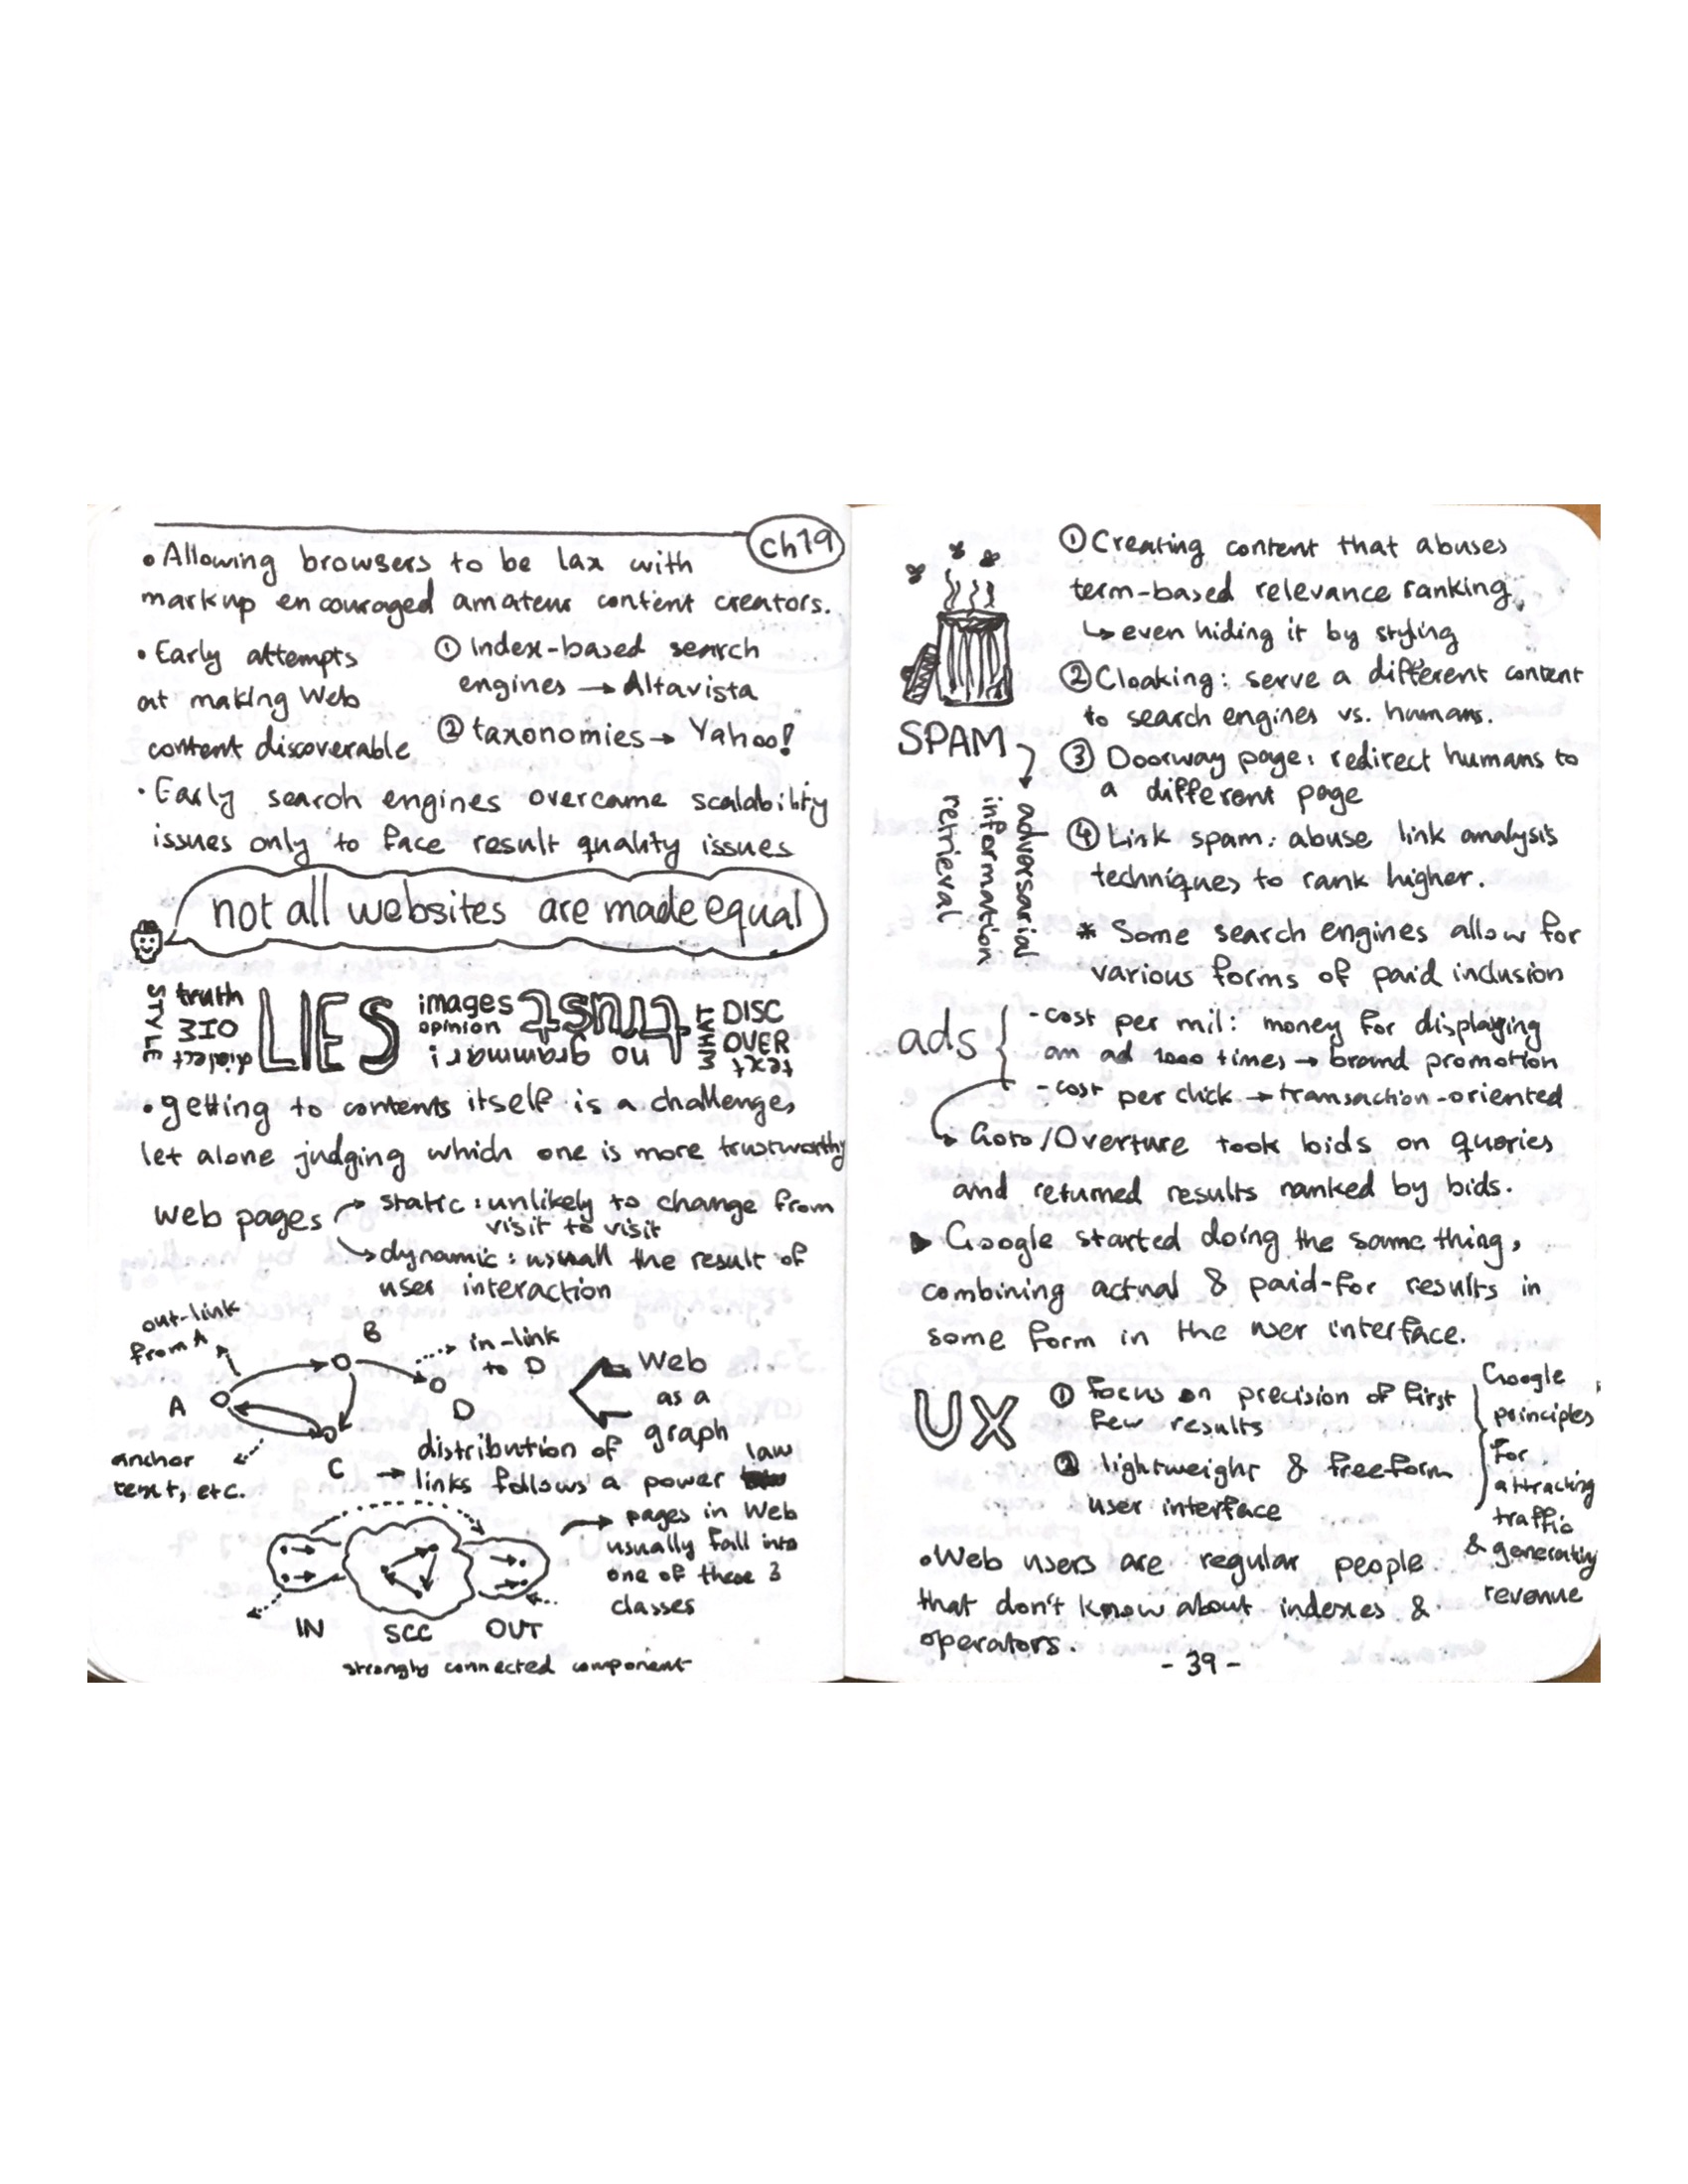 ch19
• Allowing browsers to be lax with
markup encouraged amateur content creators.
• Early attempts
at making Web
content discoverable
① Index-based search
engines → Altavista
② taxonomies → Yahoo!
• Early search engines overcame scalability
issues only to face result quality issues
not all websites are made equal
STYLE
truth
OIE
dialect
LIES
images
opinion
no grammar!
trust
DISC
OVER
text
• getting to contents itself is a challenge,
let alone judging which one is more trustworthy
web pages
→ static: unlikely to change from
visit to visit
→ dynamic: usuall the result of
user interaction
out-link
from A
B
in-link
to D
A
D
C
anchor
text, etc.
Web
as a
graph
distribution of
→ links follows a power law
→ pages in Web
usually fall into
one of these 3
classes
IN SCC OUT
strongly connected component
SPAM
adversarial
information
retrieval
① Creating content that abuses
term-based relevance ranking,
↳ even hiding it by styling
② Cloaking: serve a different content
to search engines vs. humans.
③ Doorway page: redirect humans to
a different page
④ Link spam: abuse link analysis
techniques to rank higher.
* Some search engines allow for
various forms of paid inclusion
ads
- cost per mil: money for displaying
an ad 1000 times → brand promotion
- cost per click → transaction-oriented
Goto/Overture took bids on queries
and returned results ranked by bids.
▶ Google started doing the same thing,
combining actual & paid-for results in
some form in the user interface.
UX
① focus on precision of first
few results
② lightweight & freeform
user interface
Google
principles
for
attracting
traffic
& generating
revenue
• Web users are regular people
that don't know about indexes &
operators.
- 39 -